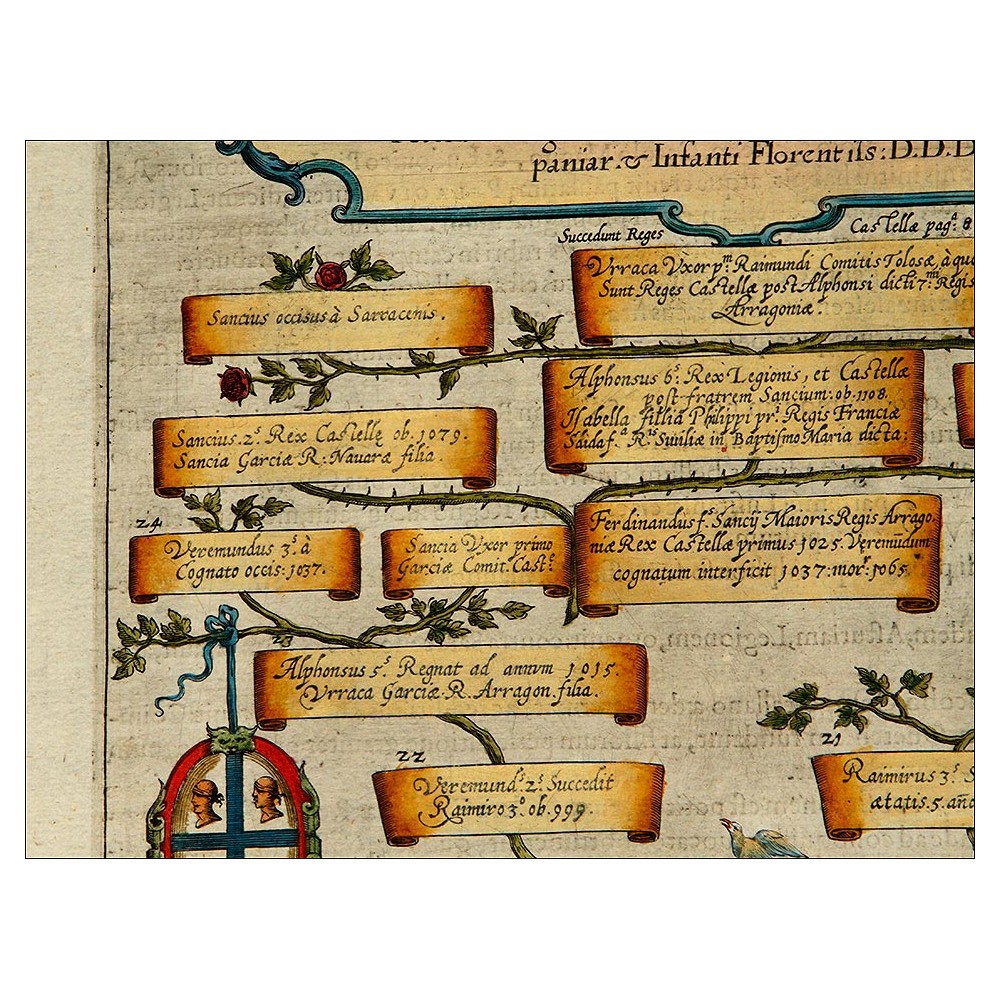 paniar. & Infanti Florentiss: D.D.D
Succedunt Reges
Castellæ pag.ª 8
Sancius occisus à Sarracenis.
Vrraca Vxor p.m Raimundi Comitis Tolosæ, à quo
Sunt Reges Castellæ post Alphonsi dicti 7.mi Regis
Arragoniæ.
Alphonsus 6.s Rex Legionis, et Castellæ
post fratrem Sancium: ob. 1108.
Isabella filia Philippi pr.i Regis Franciæ
Saida f.ª R.is in Baptismo Maria dicta:
Sancius. 2.s Rex Castellę ob. 1079.
Sancia Garciæ R: Nauaræ filia.
24
Veremundus 3.s à
Cognato occis: 1037.
Sancia Vxor primo
Garciæ Comit. Cast.e
Ferdinandus f.s Sancij Maioris Regis Arrago
niæ Rex Castellæ primus 1025. Veremūdum
cognatum interficit 1037: mor: 1065.
Alphonsus 5.s Regnat ad annum 1015.
Vrraca Garciæ. R. Arragon. filia.
22
Veremund.s 2.s Succedit
Raimiro 3.o ob. 999.
21
Raimirus 3.s S
ætatis. 5. año